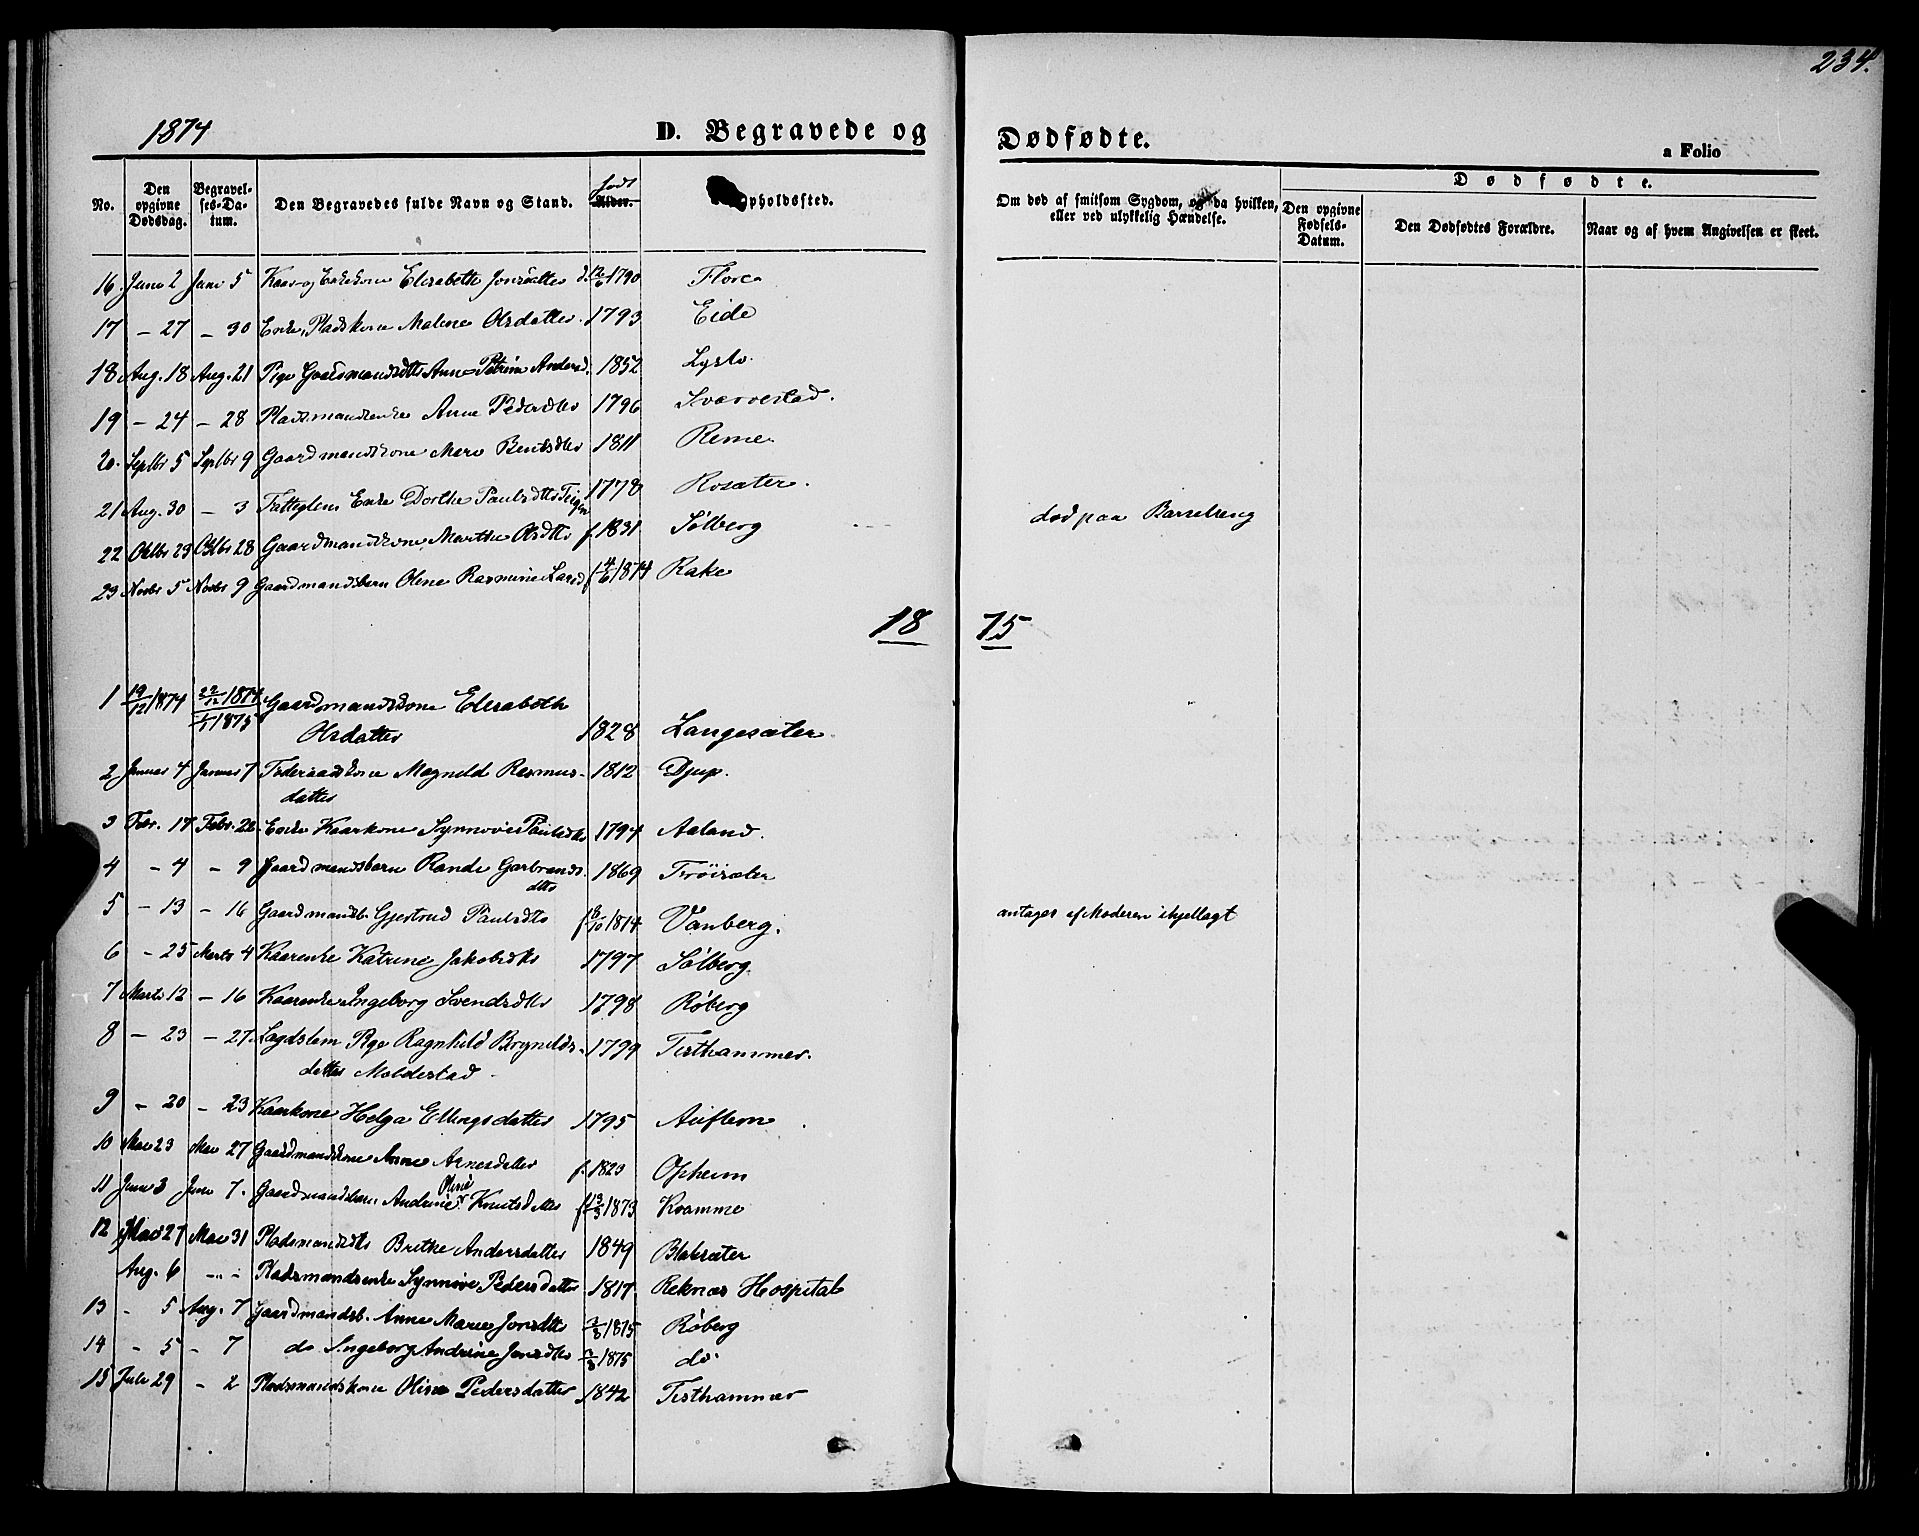 234.
1874 D. Begravede og Dødfødte. a Folio
No. Den opgivne Dødsdag. Begravelses-Datum. Den Begravedes fulde Navn og Stand. født Alder. Opholdssted. Om død af smitsom Sygdom, og da hvilken, eller ved ulykkelig Hændelse. Dødfødte.
Den opgivne Fødsels-Datum. Den Dødfødtes Forældre. Naar og af hvem Angivelsen er skeet.
16. Juni 2 Juni 5 Kaar- og Enkekone Elisabeth Jonsdatter d. 12/6 1790 Flore
17 - 27 - 30 Enke, Pladskone Malene Olsdatter. 1793 Eide
18 Aug. 18 Aug. 21 Pige Gaardmandsdtter Anne Petrine Andersd. 1852 Lyslo.
19 - 24 - 28 Pladsmandsenke Anne Pedersdtr 1796 Sværvestad.
20. Septbr 5 Septbr 9 Gaardmandskone Mari Bentsdtr 1811 Reme
21 Aug. 30 - 3 Fattiglem Enke Dorthe Paulsdtr Teigen 1778 Rosæter. død paa Barselseng
22 Oktbr 23 Oktbr 28 Gaardmandskone Marthe Olsdtr f. 1831 Sølberg
23 Novbr 5 Novbr 9 Gaardmandsbarn Oline Rasmine Larsd f 4/6 1874 Rake
18 75
1 19/12 1874 22/12 1874 1/1 1875 Gaardmandskone Elisabeth
Olsdatter 1828 Langesæter.
2 Januar 4 Januar 7 Føderaadskone Magnild Rasmus- 1812 Djup.
datter
3 Febr. 17 Febr. 22 Enke Kaarkone Synnøve Paulsdtr 1794 Aaland.
4 - 4 - 9 Gaardmandsbarn Rande Garbrands- 1869 Frøisæter
dtr
5 - 13 - 16 Gaardmandsb. Gjertrud Paulsdtr f 18/10 1874 Vanberg. antages af Moderen ihjellagt
6 - 25 Marts 4 Kaarenke Katrine Jakobsdtr 1797 Sølberg
7 Marts 12 - 16 Kaarenke Ingeborg Svendsdtr 1798 Røberg
8 - 23 - 27. Lægdslem Pige Ragnhild Brynilds- 1799 Tisthammer.
datter Moldestad
9 - 20 - 23 Kaarkone Helga Ellingsdatter 1795 Auflem
10 Mai 23 Mai 27 Gaardmandskone Anne Arnesdatter f. 1823 Opheim
11 Juni 3 Juni 7. Gaardmandsbarn Andrine Oline Knutsdatter f 13/3 1873 Kvamme
12 Mai 27 Mai 31 Pladsmandsdtr Brithe Andersdatter 1849 Blaksæter
Aug. 6 - " - Pladsmandsenke Synnøve Pedersdatter 1817. Reknæs Hospital
13 - 5 Aug. 7 Gaardmandsb. Anne Marie Jonsdtr 3/8 1875 Røberg
14 - 5 - 7 do Ingeborg Andrine Jonsdtr 3/8 1875 do
15 Juli 29 - 2 Pladsmandskone Oline Pedersdatter 1842 Tisthammer